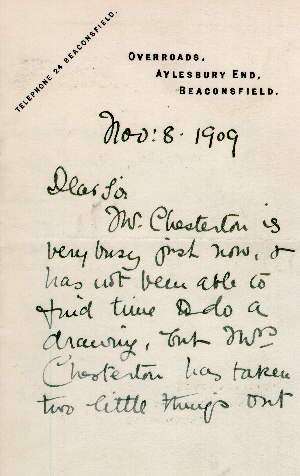 TELEPHONE 24 BEACONSFIELD.
OVERROADS,
AYLESBURY END,
BEACONSFIELD.
Nov: 8. 1909
Dear Sir
Mr. Chesterton is
very busy just now, &
has not been able to
find time to do a
drawing, but Mrs
Chesterton has taken
two little things out